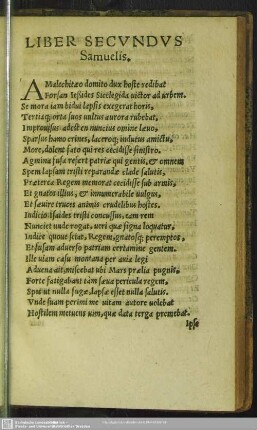 LIBER SECVNDVS
Samuelis.
AMalechitæo domito dux hoste redibat
Forsan Iesides Siceligida victor ad urbem.
Se mora iam bidui lapsis exegerat horis,
Tertiaq; orta suos uultus aurora rubebat,
Improuisus adest en nuncius omine læuo,
Sparsus humo crines, laceroq; indutus amictu,
More, dolent fato qui res cecidisse sinistro.
Agmina fusa refert patriæ qui gentis, & omnem
Spem lapsam tristi reparandæ clade salutis,
Præterea Regem memorat cecidisse sub armis,
Et gnatos illius, & innumerabile uulgus,
Et sæuire truces animis crudelibus hostes.
Indicio Isaides tristi concussus, eam rem
Nunciet unde rogat, ueri quæ signa loquatur,
Indice quoue sciat, Regem, gnatosq; peremptos,
Et fusam aduerso patriam certamine gentem.
Ille uiam casu montana per auia legi
Aduena ait, miscebat ubi Mars prælia pugnis,
Forte fatigabant iam sæua pericula regem,
Spes ut nulla fugæ, lapsæ esset nulla salutis.
Vnde suam perimi me uitam autore uolebat
Hostilem metuens uim, quæ data terga premebat.
Ipse